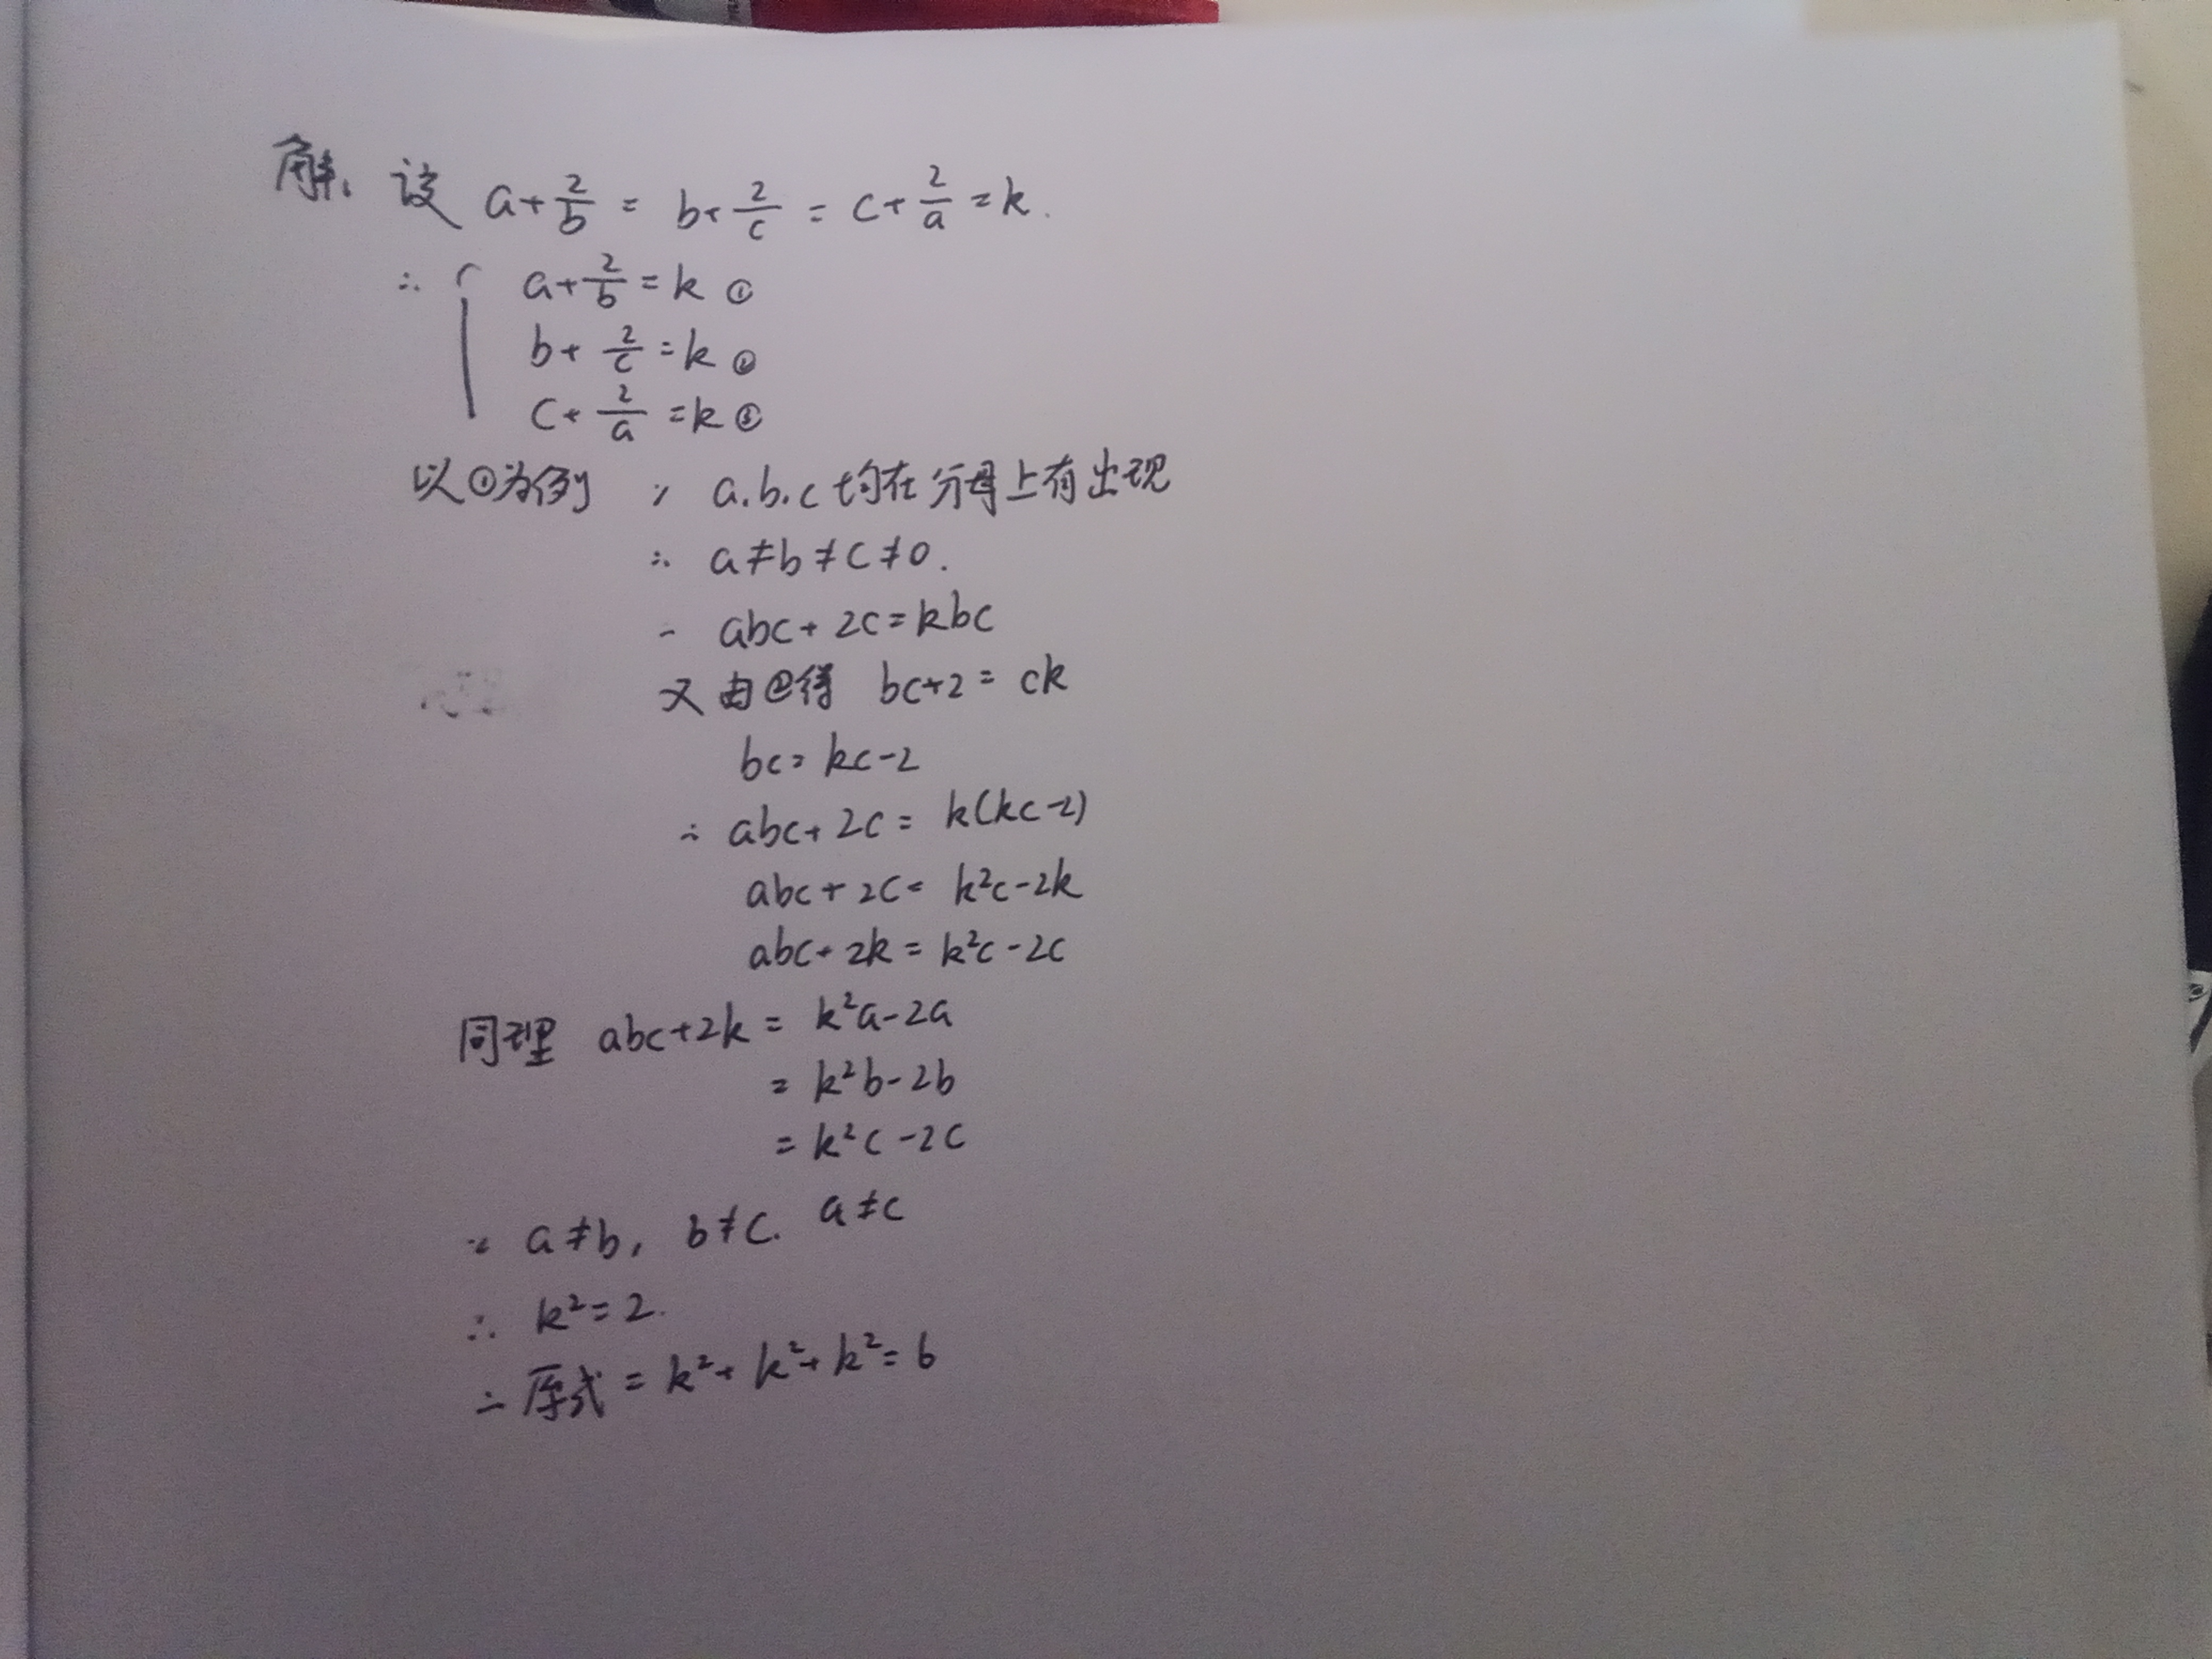 解、设 a+2/b = b+2/c = c+2/a = k.
∴ { a+2/b = k ①
b+2/c = k ②
c+2/a = k ③
以①为例 ∵ a.b.c 均在分母上有出现
∴ a≠b≠c≠0.
∴ abc+2c=kbc
又由②得 bc+2= ck
bc= kc-2
∴ abc+2c= k(kc-2)
abc+2c= k²c-2k
abc+2k= k²c-2c
同理 abc+2k= k²a-2a
= k²b-2b
= k²c-2c
∵ a≠b, b≠c. a≠c
∴ k²=2.
∴ 原式= k²+k²+k²=6